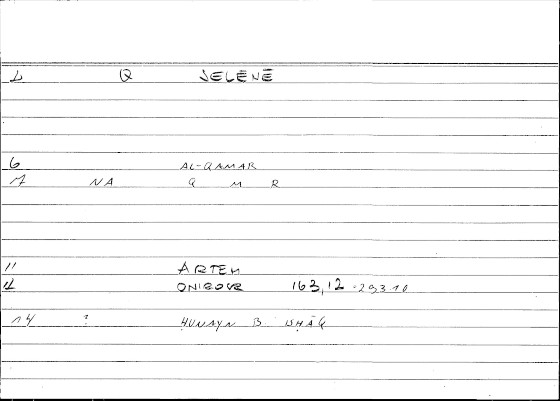 1 Q SELĒNĒ
6 AL-QAMAR
7 NA Q M R
11 ARTEM
12 ONIROCR 163,12-293.10
14 ? ḤUNAYN B. ISḤĀQ